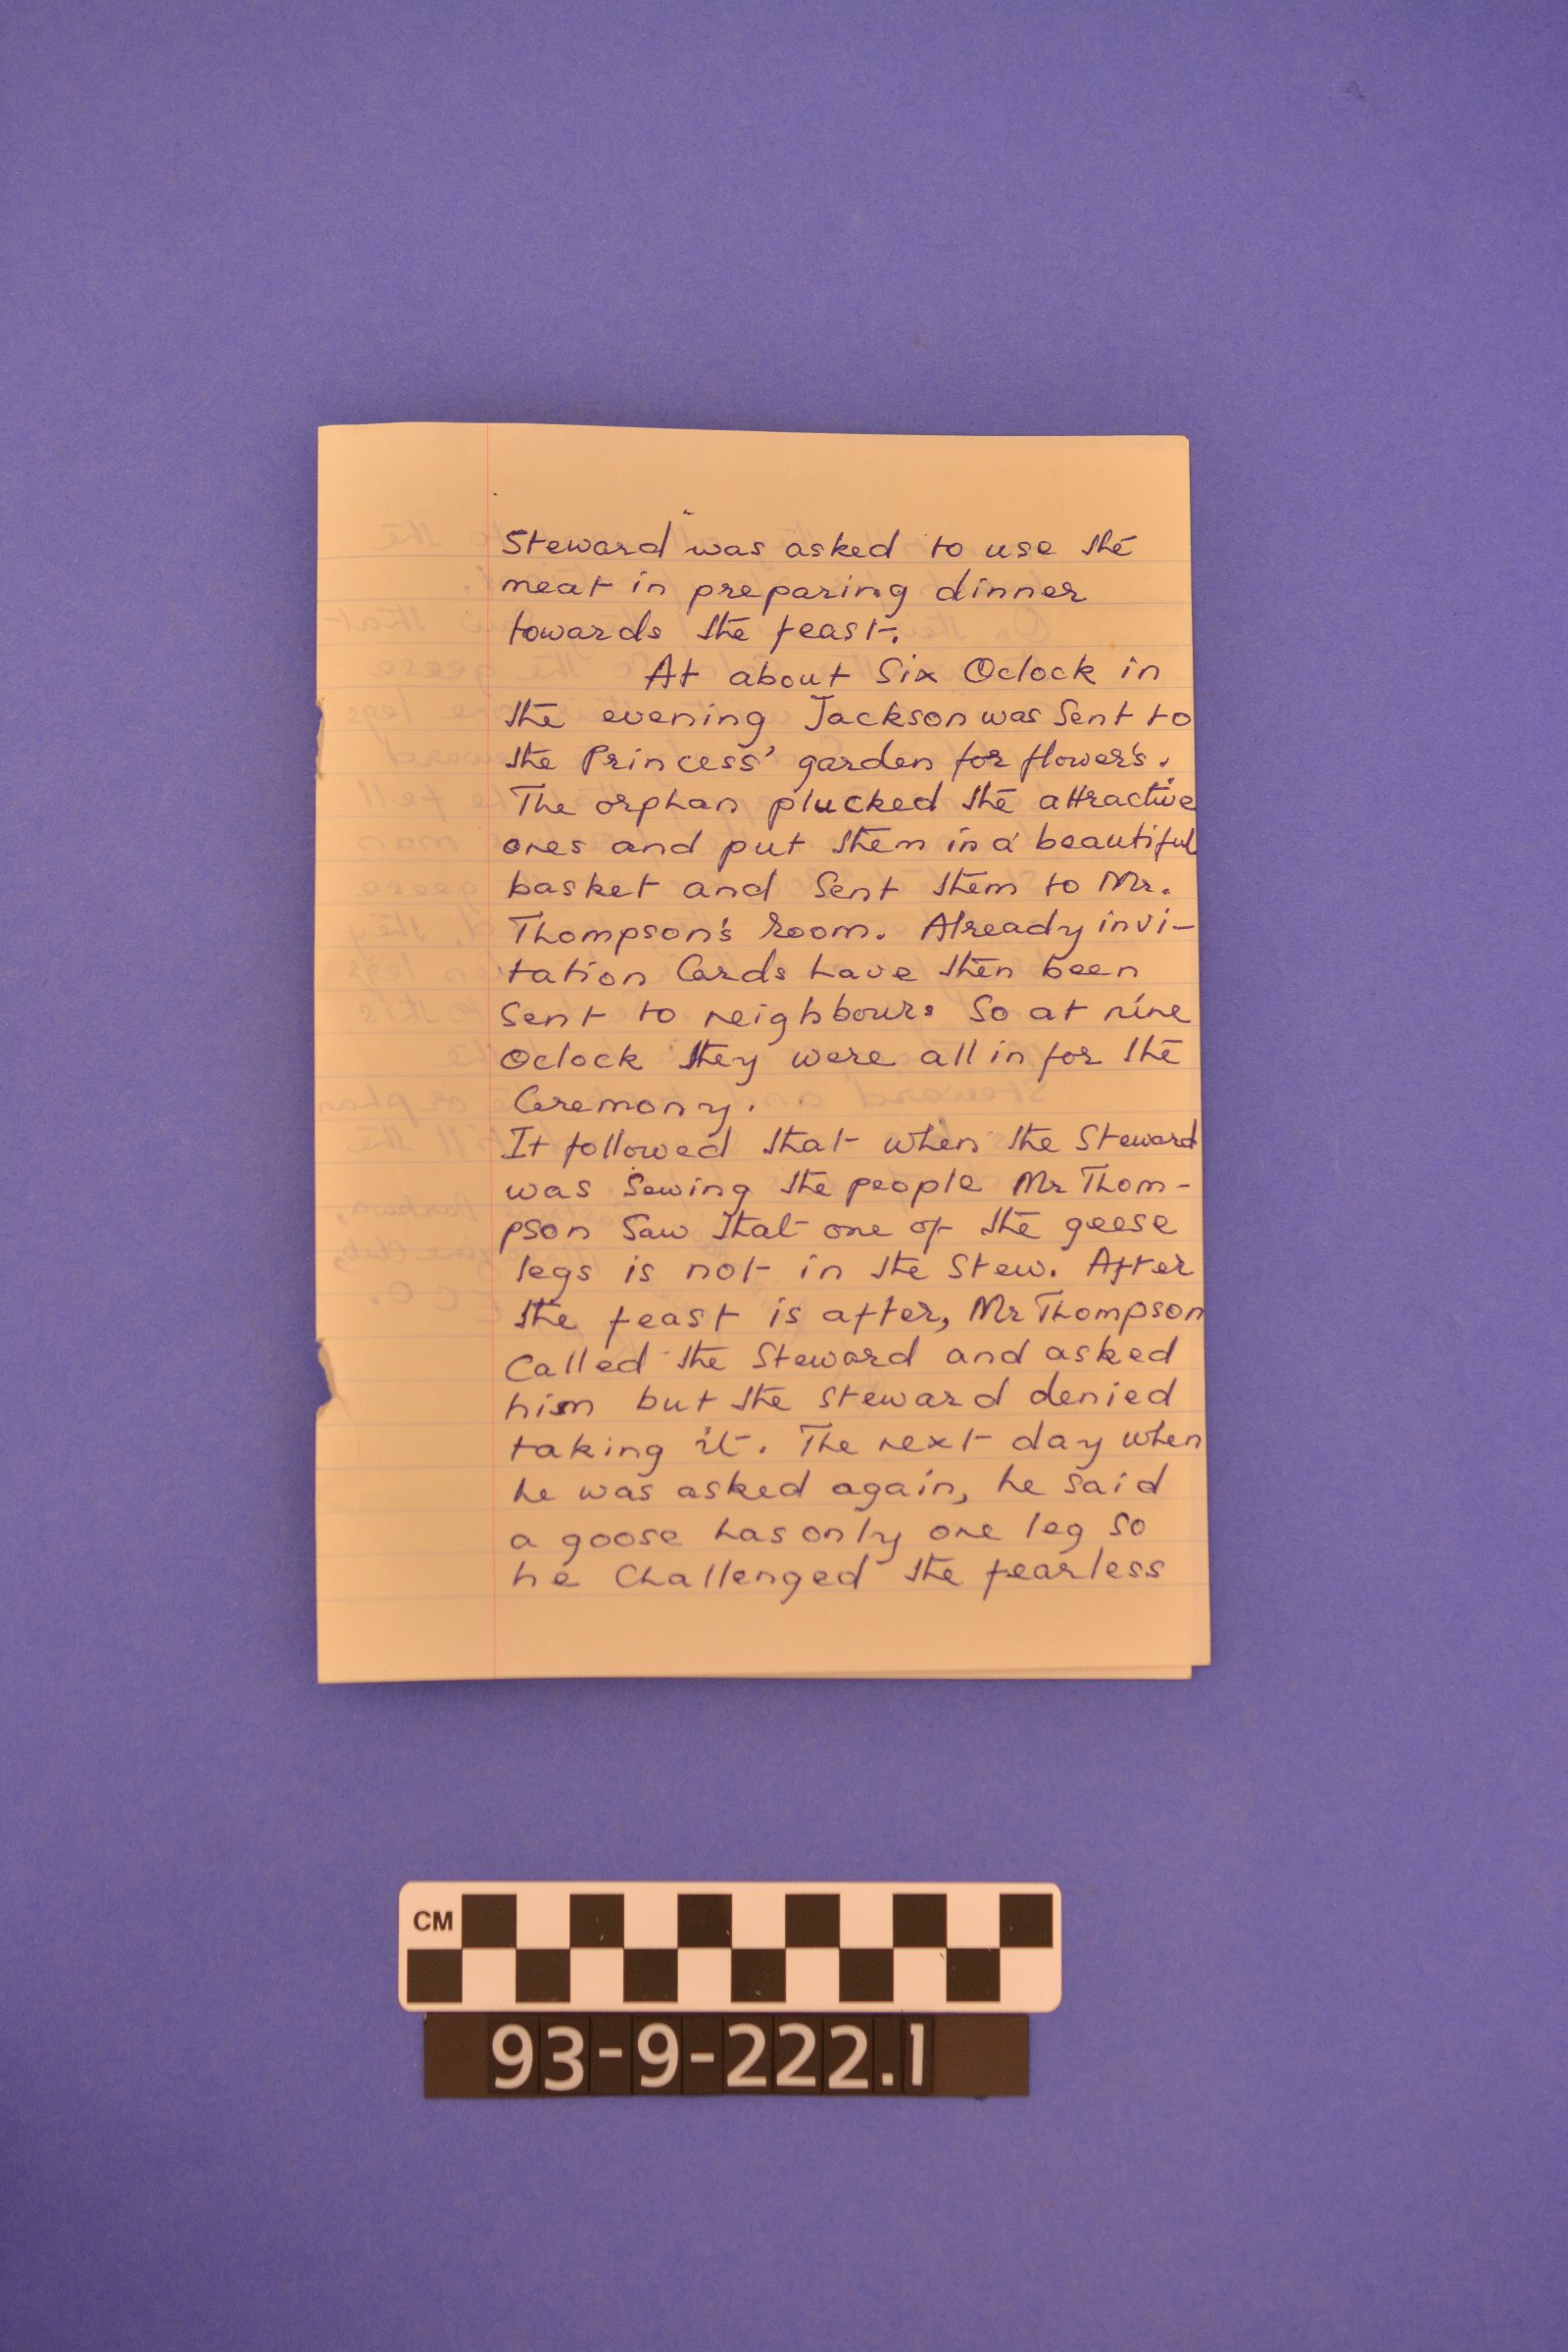 Steward was asked to use the
meat in preparing dinner
towards the feast.
At about Six Oclock in
the evening Jackson was Sent to
the Princess' garden for flower's.
The orphan plucked the attractive
ones and put them in a beautiful
basket and Sent them to Mr.
Thompson's room. Already invi-
tation Cards have then been
Sent to neighbours So at nine
Oclock they were all in for the
Ceremony.
It followed that when the Steward
was Sewing the people Mr Thom-
pson Saw that one of the geese
legs is not in the Stew. After
the feast is after, Mr Thompson
Called the Steward and asked
him but the Steward denied
taking it. The next day when
he was asked again, he Said
a goose has only one leg So
he Challenged the fearless
CM
93-9-222.1